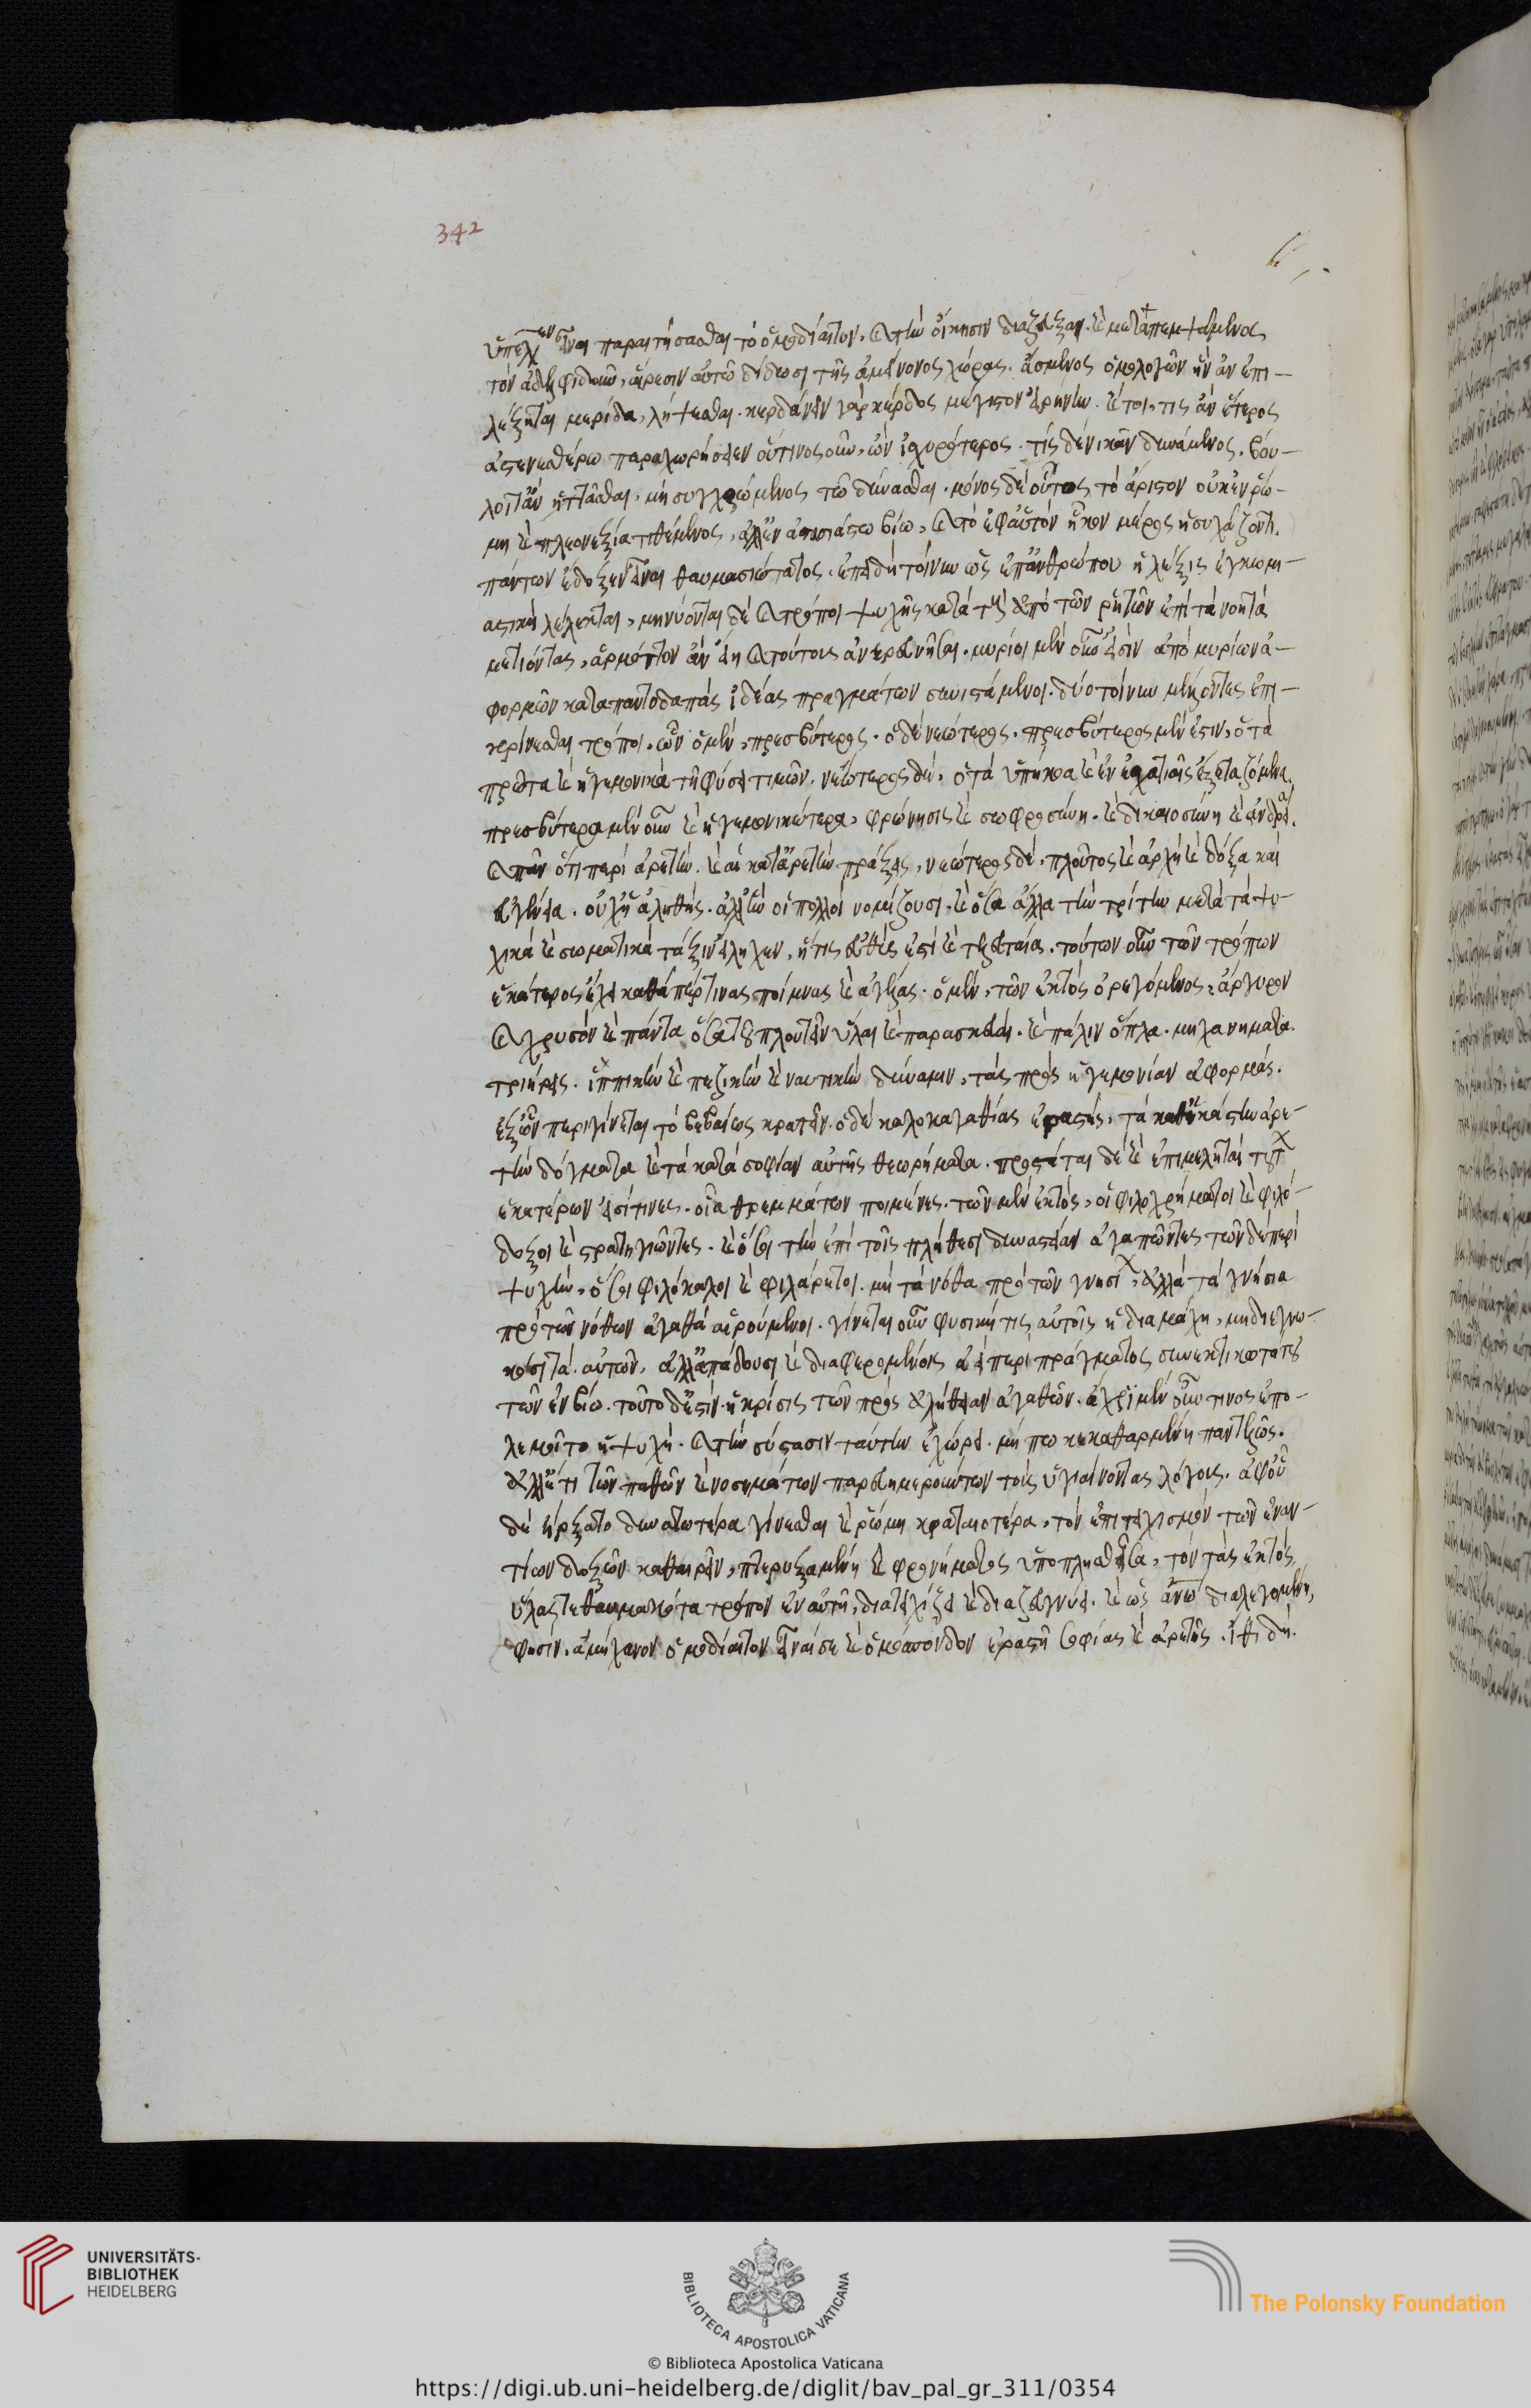 342
ὑπέλαβεν εἶναι παραιτήσασθαι τὸ ὁμοδίαιτον. καὶ τὴν οἴκησιν διαζεῦξαι. καὶ μεταπεμψάμενος
τὸν ἀδελφιδοῦν, αἵρεσιν αὐτῷ δίδωσι τῆς ἀμείνονος χώρας. ἄσμενος ὁμολογῶν ἣν ἂν ἐπι-
λέξηται μερίδα, λήψεσθαι. κερδανεῖν γὰρ κέρδος μέγιστον εἰρήνην. καίτοι τίς ἂν ἕτερος
ἀσθενεστέρω παραχωρήσειεν οὑτινοσοῦν, ὢν ἰσχυρότερος. τίς δὲ νικᾶν δυνάμενος, βού-
λοιτ' ἂν ἡττᾶσθαι, μὴ συγχρώμενος τῶ δύνασθαι. μόνος δὲ οὗτος τὸ ἄριστον οὐκ ἐν ῥώ-
μη καὶ πλεονεξία τιθέμενος, ἀλλ' ἐν βίω, καὶ τὸ ἐφ' αὑτὸν ἧκον μέρος ἡσυχάζοντι.
πάντων ἔδοξεν εἶναι θαυμασιώτατος. ἐπειδὴ τοίνυν ὡς ἐπ' ἀνθρώπου ἡ λέξις ἐγκωμι-
αστικὴ λέλεκται, μηνύονται δὲ καὶ τρόποι ψυχῆς κατὰ τοὺς ἀπὸ τῶν ῥητῶν ἐπὶ τὰ νοητὰ
μετιόντας, ἁρμόττον ἂν εἴη καὶ τούτοις ἀνερευνῆσαι. μυρίοι μὲν οὖν εἰσὶν ἀπὸ μυρίων ἀ-
φορμῶν κατὰ παντοδαπὰς ἰδέας πραγμάτων συνιστάμενοι. δύο τοίνυν μὲν ὄντες ἐπι-
κρίνεσθαι τρόποι, ὧν ὁ μὲν, πρεσβύτερος. ὁ δὲ νεώτερος. πρεσβύτερος μὲν ἐστιν, ὁ τὰ
πρῶτα καὶ ἡγεμονικὰ τῆ φύσει τιμῶν. νεώτερος δὲ, ὁ τὰ ὑπήκοα καὶ ἐν ἐσχατιαῖς ἐξεταζόμενα.
πρεσβύτερα μὲν οὖν καὶ ἡγεμονικώτερα, φρόνησις καὶ σωφροσύνη. καὶ δικαιοσύνη καὶ ἀνδρεία.
καὶ πᾶν ὅτι περὶ ἀρετὴν. καὶ αἱ κατ' ἀρετὴν πράξεις, νεώτερος δὲ, πλοῦτος καὶ ἀρχὴ καὶ δόξα καὶ
εὐγένεια. οὐχ' ἡ ἀληθής. ἀλλ' ἣν οἱ πολλοὶ νομίζουσι. καὶ ὅσα ἄλλα τὴν τρίτην μετὰ τὰ ψυ-
χικὰ καὶ σωματικὰ τάξιν εἴληχεν, ἥτις εὐθὺς ἐστὶ καὶ τελευταία. τούτων οὖν τῶν τρόπων
ἑκάτερος ἔχει καθάπερ τινας ποίμνας καὶ ἀγέλας. ὁ μὲν, τῶν ἐκτὸς ὀρεγόμενος, ἄργυρον
καὶ χρυσὸν καὶ πάντα ὅσα τοῦ πλουτεῖν ὗλαι καὶ παρασκευαὶ. καὶ πάλιν ὅπλα. μηχανήματα.
τριήρεις. ἱππικὴν καὶ πεζικὴν καὶ ναυτικὴν δύναμιν, τὰς πρὸς ἡγεμονίαν ἀφορμάς.
ἐξ ὧν περιγίνεται τὸ βεβαίως κρατεῖν. ὁ δὲ καλοκαγαθίας ἐραστὴς, τὰ καθ' ἑκάστην ἀρε-
τὴν δόγματα καὶ τὰ κατὰ σοφίαν αὐτῆς θεωρήματα. προστάται δὲ καὶ ἐπιμεληταὶ τούτων
ἑκατέρων εἰσί τινες. οἷα θρεμμάτων ποιμένες. τῶν μὲν ἐκτὸς, οἱ φιλοχρήματοι καὶ φιλό-
δοξοι καὶ στρατηγιῶντες. καὶ ὅσοι τὴν ἐπὶ τοῖς πλήθεσι δυναστείαν ἀγαπῶντες τῶν δὲ περὶ
ψυχὴν, ὅσοι φιλόκαλοι καὶ φιλάρετοι. μὴ τὰ νόθα πρὸ τῶν γνησίων, ἀλλὰ τὰ γνήσια
πρὸ τῶν νόθων ἀγαθὰ αἱρούμενοι. γίνεται οὖν φυσική τις αὐτοῖς ἡ διαμάχη, μηδὲ ἐγνω-
κόσι τὰ αὐτῶν, ἀλλ' ἀπάδουσι καὶ διαφερομένοις ἀεὶ περὶ πράγματος συνεκτικωτάτου
τῶν ἐν βίω. τοῦτο δ' ἐστὶν, ἡ κρίσις τῶν πρὸς ἀλήθειαν ἀγαθῶν. ἄχρι μὲν οὖν τινος ἐπο-
λεμοῖτο ἡ ψυχὴ. καὶ τὴν σύστασιν ταύτην ἐχώρει. μή πω κεκαθαρμένη παντελῶς.
ἀλλ' ἔτι τῶν παθῶν καὶ νοσημάτων παρευημερούντων τοὺς ὑγιαίνοντας λόγους. ἀφ' οὗ
δὲ ἤρξατο δυνατωτέρα γίνεσθαι καὶ ῥώμη κραταιοτέρα, τὸν ἐπιτειχισμὸν τῶν ἐναν-
τίων δοξῶν καθαιρεῖν, πτερυξαμένη καὶ φρονήματος ὑποπλησθεῖσα, τὸν τὰς ἐκτὸς
ὕλας τεθαυμακότα τρόπον ἐν αὐτῆ, διατειχίζει καὶ διαζευγνύει. καὶ ὡς ἀνω διαλεγομένη,
φησὶν. ἀμήχανον ὁμοδίαιτον εἶναί σε καὶ ὁμόσπονδον ἐραστῆ σοφίας καὶ ἀρετῆς. ἴθι δὴ.
UNIVERSITÄTS-
BIBLIOTHEK
HEIDELBERG
BIBLIOTECA APOSTOLICA VATICANA
The Polonsky Foundation
© Biblioteca Apostolica Vaticana
https://digi.ub.uni-heidelberg.de/diglit/bav_pal_gr_311/0354